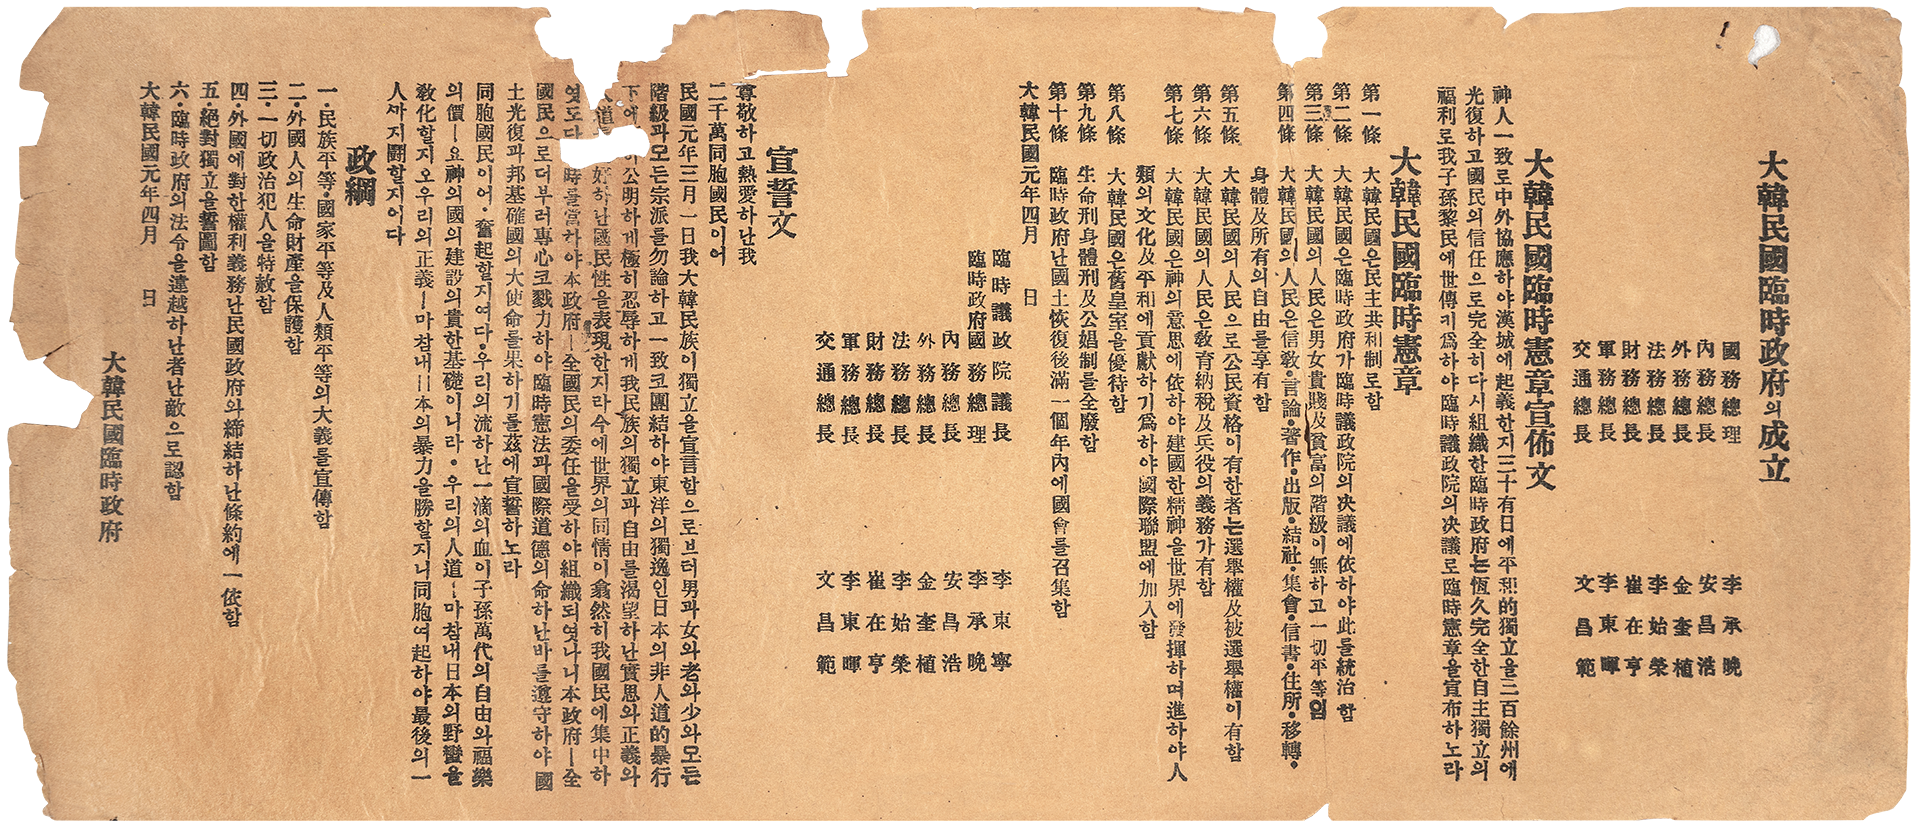 大韓民國臨時政府의成立
國務總理 李承晩
內務總長 安昌浩
外務總長 金奎植
法務總長 李始榮
財務總長 崔在亨
軍務總長 李東暉
交通總長 文昌範
大韓民國臨時憲章宣佈文
神人一致로中外協應하야漢城에起義한지三十有日에平和的獨立을三百餘州에
光復하고國民의信任으로完全히다시組織한臨時政府는恆久完全한自主獨立의
福利로我子孫黎民에世傳키爲하야臨時議政院의決議로臨時憲章을宣布하노라
大韓民國臨時憲章
第一條 大韓民國은民主共和制로함
第二條 大韓民國은臨時政府가臨時議政院의決議에依하야此를統治함
第三條 大韓民國의人民은男女貴賤及貧富의階級이無하고一切平等임
第四條 大韓民國의人民은信敎·言論·著作·出版·結社·集會·信書·住所·移轉·
身體及所有의自由를享有함
第五條 大韓民國의人民으로公民資格이有한者는選擧權及被選擧權이有함
第六條 大韓民國의人民은敎育納稅及兵役의義務가有함
第七條 大韓民國은神의意思에依하야建國한精神을世界에發揮하며進하야人
類의文化及平和에貢獻하기爲하야國際聯盟에加入함
第八條 大韓民國은舊皇室을優待함
第九條 生命刑身體刑及公娼制를全廢함
第十條 臨時政府난國土恢復後滿一個年內에國會를召集함
大韓民國元年四月 日
臨時議政院議長 李東寧
臨時政府國務總理 李承晩
內務總長 安昌浩
外務總長 金奎植
法務總長 李始榮
財務總長 崔在亨
軍務總長 李東暉
交通總長 文昌範
宣誓文
尊敬하고熱愛하난我
二千萬同胞國民이어
民國元年三月一日我大韓民族이獨立을宣言함으로브터男과女와老와少와모든
階級과모든宗派를勿論하고一致코團結하야東洋의獨逸人日本의非人道的暴行
下에 公明하게極히忍辱하게我民族의獨立과自由를渴望하난實思와正義와
道 好하난國民性을表現한지라今에世界의同情이翕然히我國民에集中하
엿도다 時를當하야本政府ㅣ全國民의委任을受하야組織되엿나니本政府ㅣ全
國民으로더부러專心코戮力하야臨時憲法과國際道德의命하난바를遵守하야國
土光復과邦基確國의大使命을果하기를玆에宣誓하노라
同胞國民이어·奮起할지여다·우리의流하난一滴의血이子孫萬代의自由와福樂
의價ㅣ요神의國의建設의貴한基礎이니라·우리의人道ㅣ마참내日本의野蠻을
敎化할지오우리의正義ㅣ마참내日本의暴力을勝할지니同胞여起하야最後의一
人까지鬪할지어다
政綱
一·民族平等·國家平等及人類平等의大義를宣傳함
二·外國人의生命財產을保護함
三·一切政治犯人을特赦함
四·外國에對한權利義務난民國政府와締結하난條約에一依함
五·絕對獨立을誓圖함
六·臨時政府의法令을違越하난者난敵으로認함
大韓民國元年四月 日
大韓民國臨時政府